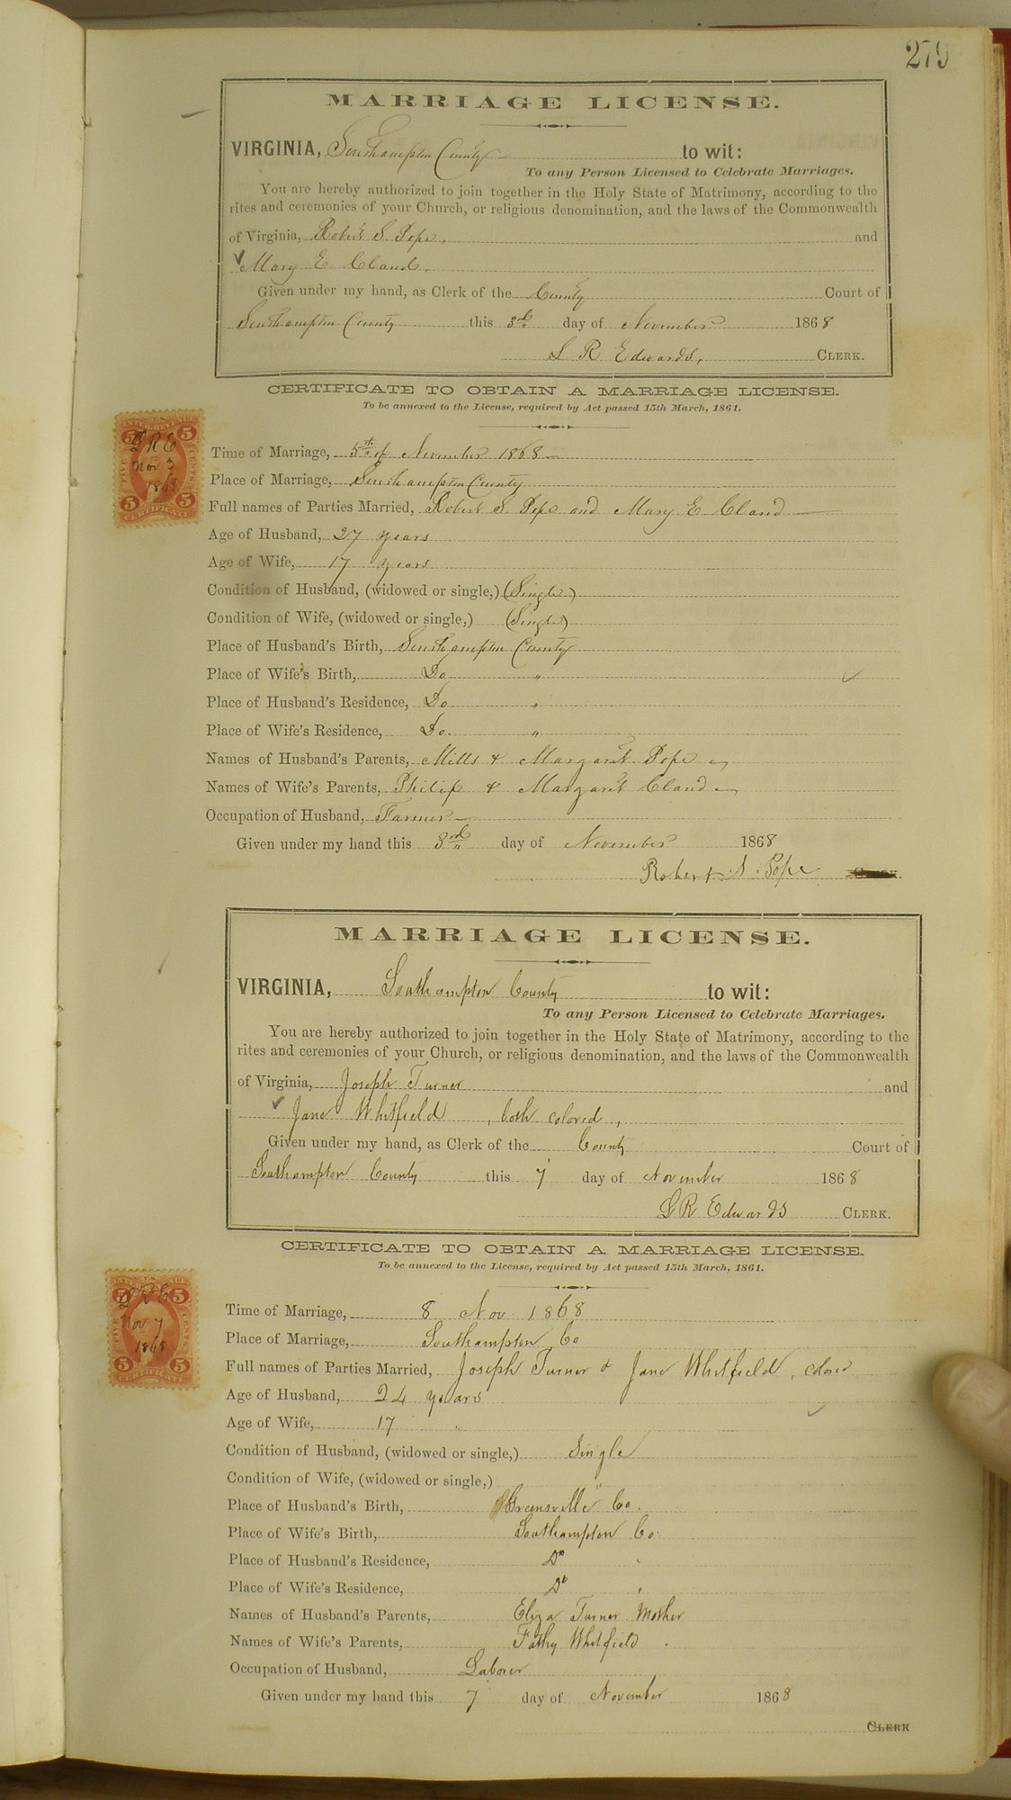 279
MARRIAGE LICENSE.
VIRGINIA, Southampton County to wit:
To any Person Licensed to Celebrate Marriages.
You are hereby authorized to join together in the Holy State of Matrimony, according to the
rites and ceremonies of your Church, or religious denomination, and the laws of the Commonwealth
of Virginia, Robert S Pope, and
Mary E Claud.
Given under my hand, as Clerk of the County Court of
Southampton County this 3rd day of November 1868
L R Edwards, CLERK.
CERTIFICATE TO OBTAIN A MARRIAGE LICENSE.
To be annexed to the License, required by Act passed 15th March, 1861.
5 5
L R E
Nov 3
1868
5 5
CERTIFICATE
Time of Marriage, 5th of November 1868
Place of Marriage, Southampton County
Full names of Parties Married, Robert S. Pope and Mary E Claud
Age of Husband, 27 years
Age of Wife, 17 years
Condition of Husband, (widowed or single,) (Single)
Condition of Wife, (widowed or single,) (Single)
Place of Husband's Birth, Southampton County
Place of Wife's Birth, Do "
Place of Husband's Residence, Do "
Place of Wife's Residence, Do. "
Names of Husband's Parents, Mills & Margaret Pope
Names of Wife's Parents, Philip & Margaret Claud
Occupation of Husband, Farmer
Given under my hand this 3rd day of November 1868
Robert S. Pope
MARRIAGE LICENSE.
VIRGINIA, Southampton County to wit:
To any Person Licensed to Celebrate Marriages.
You are hereby authorized to join together in the Holy State of Matrimony, according to the
rites and ceremonies of your Church, or religious denomination, and the laws of the Commonwealth
of Virginia, Joseph Turner and
Jane Whitfield, both colored,
Given under my hand, as Clerk of the County Court of
Southampton County this 7 day of November 1868
L R Edwards CLERK.
CERTIFICATE TO OBTAIN A MARRIAGE LICENSE.
To be annexed to the License, required by Act passed 15th March, 1861.
5 5
L R E
Nov 7
1868
5 5
CERTIFICATE
Time of Marriage, 8 Nov 1868
Place of Marriage, Southampton Co
Full names of Parties Married, Joseph Turner & Jane Whitfield, colored
Age of Husband, 24 years
Age of Wife, 17 "
Condition of Husband, (widowed or single,) Single
Condition of Wife, (widowed or single,) "
Place of Husband's Birth, Greensville Co.
Place of Wife's Birth, Southampton Co.
Place of Husband's Residence, Do
Place of Wife's Residence, Do
Names of Husband's Parents, Eliza Turner Mother
Names of Wife's Parents, Whitfield
Occupation of Husband, Laborer
Given under my hand this 7 day of November 1868
CLERK